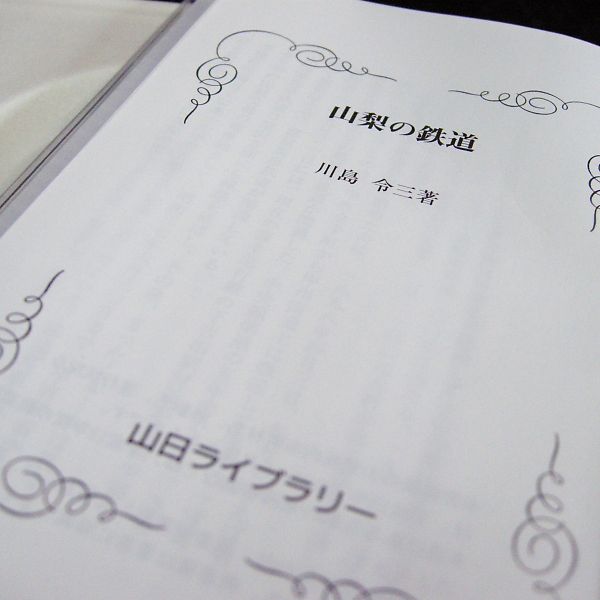 山梨の鉄道
川島 令三著
山日ライブラリー